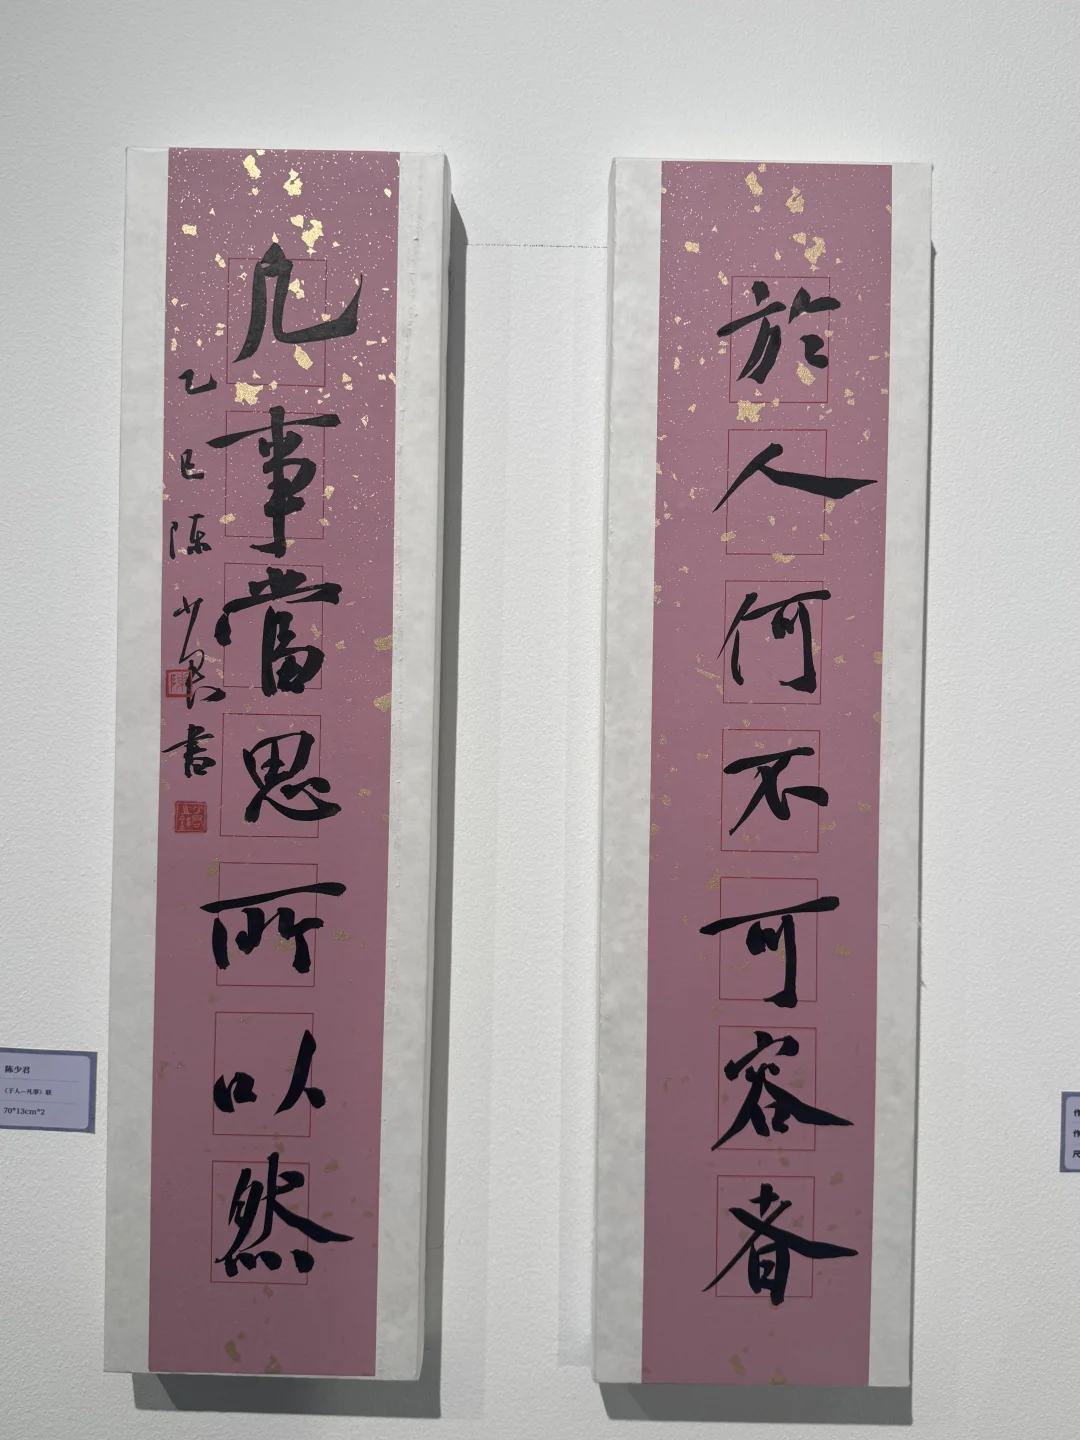 於人何不可容者
凡事當思所以然
乙巳陈少君書
陈少君
《于人—凡事》联
70*13cm*2
作
作
尺